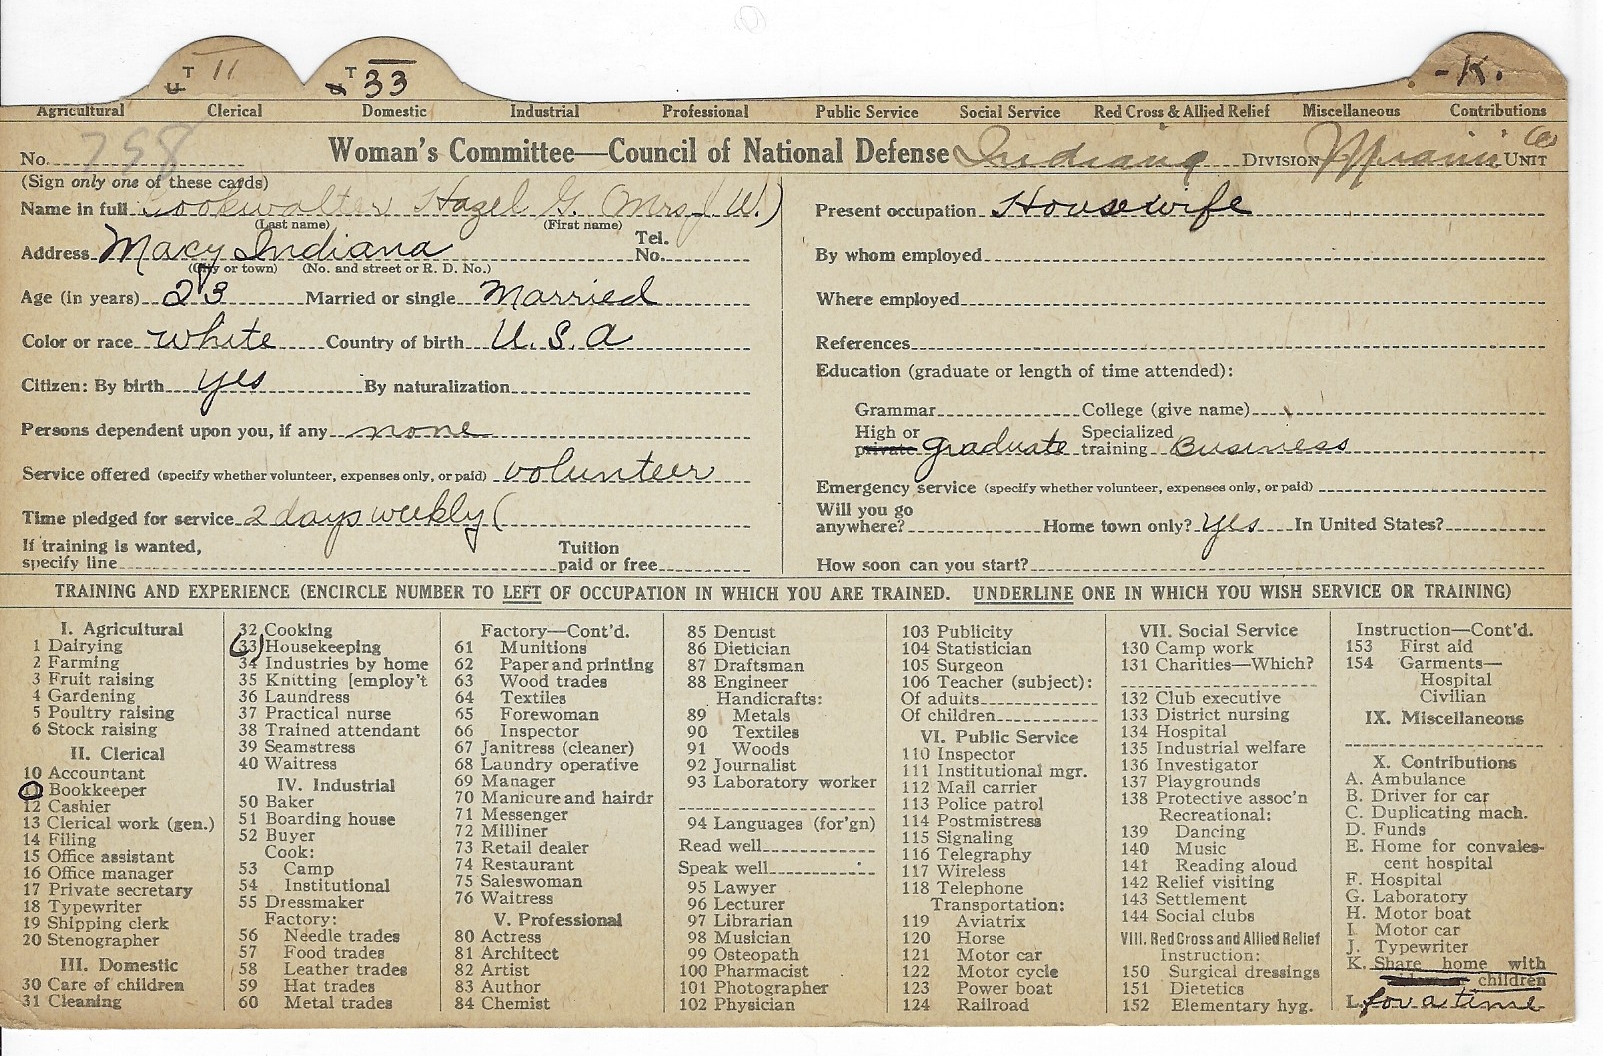 T 11
T 33
-K.
Agricultural Clerical Domestic Industrial Professional Public Service Social Service Red Cross & Allied Relief Miscellaneous Contributions
No. 758 Woman's Committee—Council of National Defense Indiana DIVISION Miami Co UNIT
(Sign only one of these cards)
Name in full Bookwalter Hazel G. (Mrs J W.)
(Last name) (First name)
Address Macy Indiana Tel. No.
(City or town) (No. and street or R. D. No.)
Age (in years) 23 Married or single Married
Color or race white Country of birth U.S.A
Citizen: By birth yes By naturalization
Persons dependent upon you, if any none
Service offered (specify whether volunteer, expenses only, or paid) volunteer
Time pledged for service 2 days weekly (
If training is wanted, specify line Tuition paid or free
Present occupation Housewife
By whom employed
Where employed
References
Education (graduate or length of time attended):
Grammar College (give name)
High or private graduate Specialized training Business
Emergency service (specify whether volunteer, expenses only, or paid)
Will you go anywhere? Home town only? Yes In United States?
How soon can you start?
TRAINING AND EXPERIENCE (ENCIRCLE NUMBER TO LEFT OF OCCUPATION IN WHICH YOU ARE TRAINED. UNDERLINE ONE IN WHICH YOU WISH SERVICE OR TRAINING)
I. Agricultural
1 Dairying
2 Farming
3 Fruit raising
4 Gardening
5 Poultry raising
6 Stock raising
II. Clerical
10 Accountant
11 Bookkeeper
12 Cashier
13 Clerical work (gen.)
14 Filing
15 Office assistant
16 Office manager
17 Private secretary
18 Typewriter
19 Shipping clerk
20 Stenographer
III. Domestic
30 Care of children
31 Cleaning
32 Cooking
33 Housekeeping
34 Industries by home
35 Knitting [employ't
36 Laundress
37 Practical nurse
38 Trained attendant
39 Seamstress
40 Waitress
IV. Industrial
50 Baker
51 Boarding house
52 Buyer
Cook:
53 Camp
54 Institutional
55 Dressmaker
Factory:
56 Needle trades
57 Food trades
58 Leather trades
59 Hat trades
60 Metal trades
Factory—Cont'd.
61 Munitions
62 Paper and printing
63 Wood trades
64 Textiles
65 Forewoman
66 Inspector
67 Janitress (cleaner)
68 Laundry operative
69 Manager
70 Manicure and hairdr
71 Messenger
72 Milliner
73 Retail dealer
74 Restaurant
75 Saleswoman
76 Waitress
V. Professional
80 Actress
81 Architect
82 Artist
83 Author
84 Chemist
85 Dentist
86 Dietician
87 Draftsman
88 Engineer
Handicrafts:
89 Metals
90 Textiles
91 Woods
92 Journalist
93 Laboratory worker
94 Languages (for'gn)
Read well
Speak well
95 Lawyer
96 Lecturer
97 Librarian
98 Musician
99 Osteopath
100 Pharmacist
101 Photographer
102 Physician
103 Publicity
104 Statistician
105 Surgeon
106 Teacher (subject):
Of adults
Of children
VI. Public Service
110 Inspector
111 Institutional mgr.
112 Mail carrier
113 Police patrol
114 Postmistress
115 Signaling
116 Telegraphy
117 Wireless
118 Telephone
Transportation:
119 Aviatrix
120 Horse
121 Motor car
122 Motor cycle
123 Power boat
124 Railroad
VII. Social Service
130 Camp work
131 Charities—Which?
132 Club executive
133 District nursing
134 Hospital
135 Industrial welfare
136 Investigator
137 Playgrounds
138 Protective assoc'n
Recreational:
139 Dancing
140 Music
141 Reading aloud
142 Relief visiting
143 Settlement
144 Social clubs
VIII. Red Cross and Allied Relief
Instruction:
150 Surgical dressings
151 Dietetics
152 Elementary hyg.
Instruction—Cont'd.
153 First aid
154 Garments—
Hospital
Civilian
IX. Miscellaneous
X. Contributions
A. Ambulance
B. Driver for car
C. Duplicating mach.
D. Funds
E. Home for convales-
cent hospital
F. Hospital
G. Laboratory
H. Motor boat
I. Motor car
J. Typewriter
K. Share home with
children
L. for a time